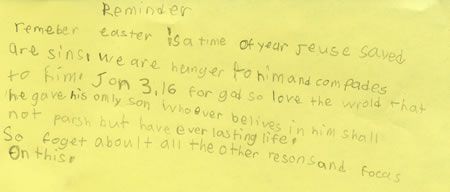 Reminder
remeber easter is a time of year jeuse saved
are sins, we are hunger to him and compades
to him. Jon 3,16 for god so love the wrold that
he gave his only son whoever belives in him shall
not parsh but have ever lasting life.
So foget aboult all the other resons and focas
on this.